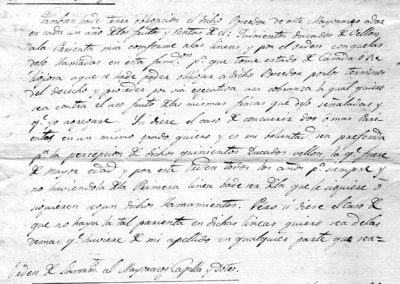 tambien ha de tener obligacion el dicho Posehedor de este Mayorazgo a dar
en cada un año de los frutos y Rentas de el: Quinientos Ducados de Vellon,
a la Parienta mia conforme a las lineas, y por el orden con que las
dejo llamadas en esta fundon. pa. que tome estado de Casada o Re-
ligiosa a que se ha de poder obligar a dicho Posehedor por los terminos
del derecho y proceder por via executiva a su cobranza la qual quiero
sea contra el uso fruto de las mismas fincas que dejo señaladas y
qe. yo agregare. Si diere el caso de concurrir dos o mas Parien-
tas en un mismo grado quiero y es mi voluntad sea preferida
pa. la percepcion de dichos quinientos ducados vellon, la qe. fuere
de mayor edad y por este orden todos los años pa. siempre, y
no haviendola de la Primera linea ha de ser de la que le siguiere o
siguieren segun dichos llamamientos. Pero si diere el Caso de
que no haya la tal parienta en dichas lineas quiero sea de las
demas qe. huviere de mi apellido en qualquier parte que sea-
Orden de llamamtos. al Mayorazgo Capilla y dotes.